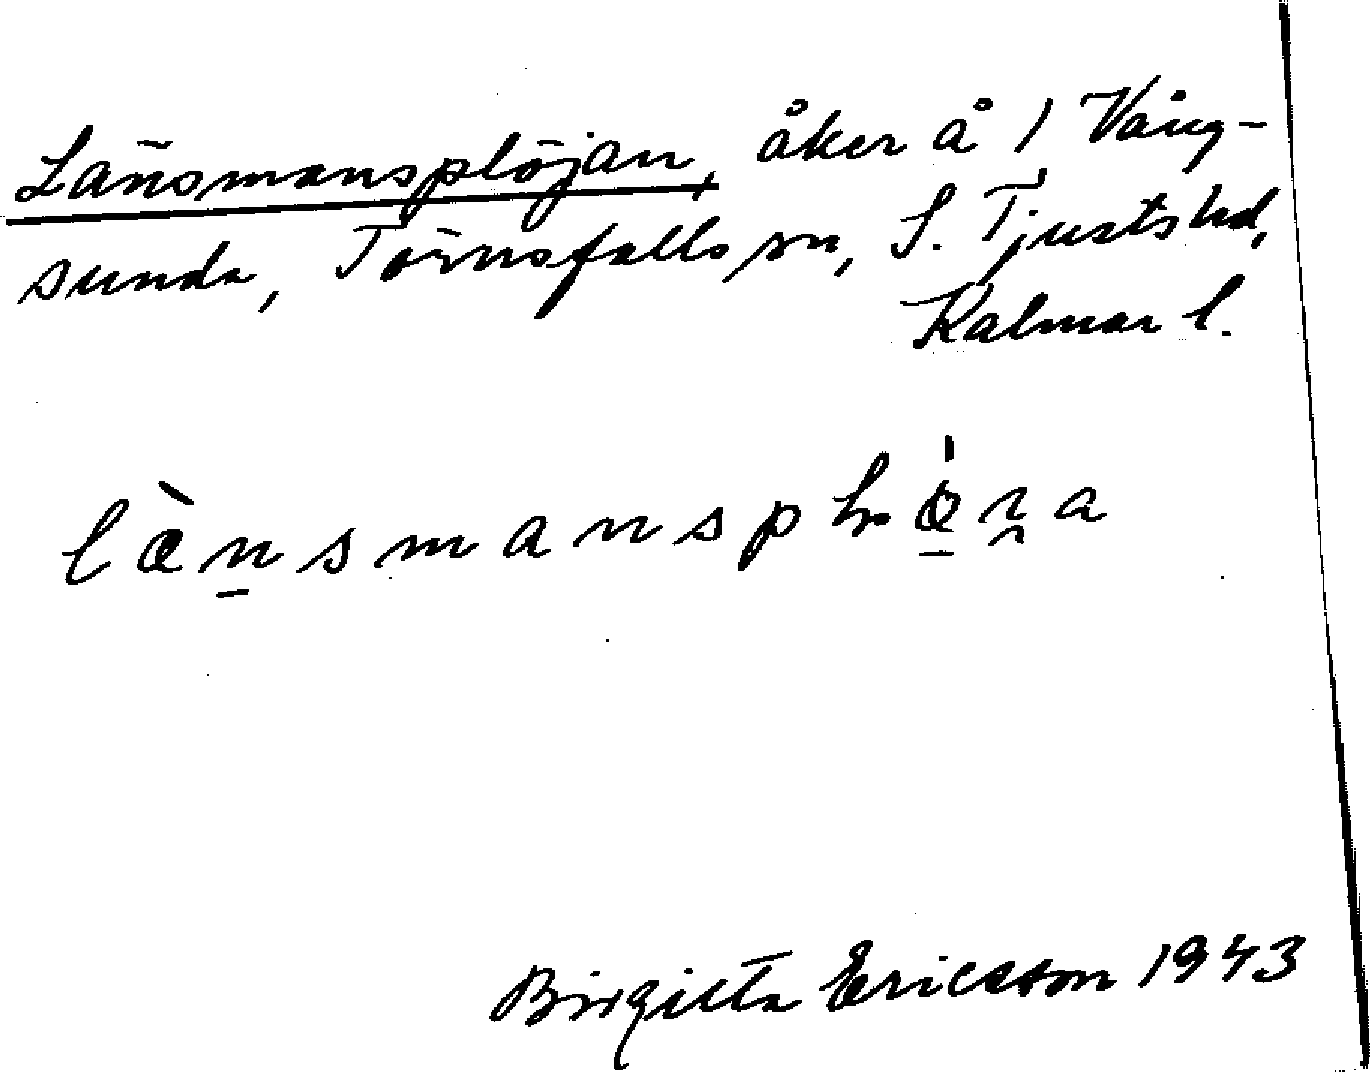 Länsmansplöjan, åker å 1 Vång-
sunda, Törnsfalls sn, S. Tjusts hd,
Kalmar l.
Birgitta Ericsson 1943